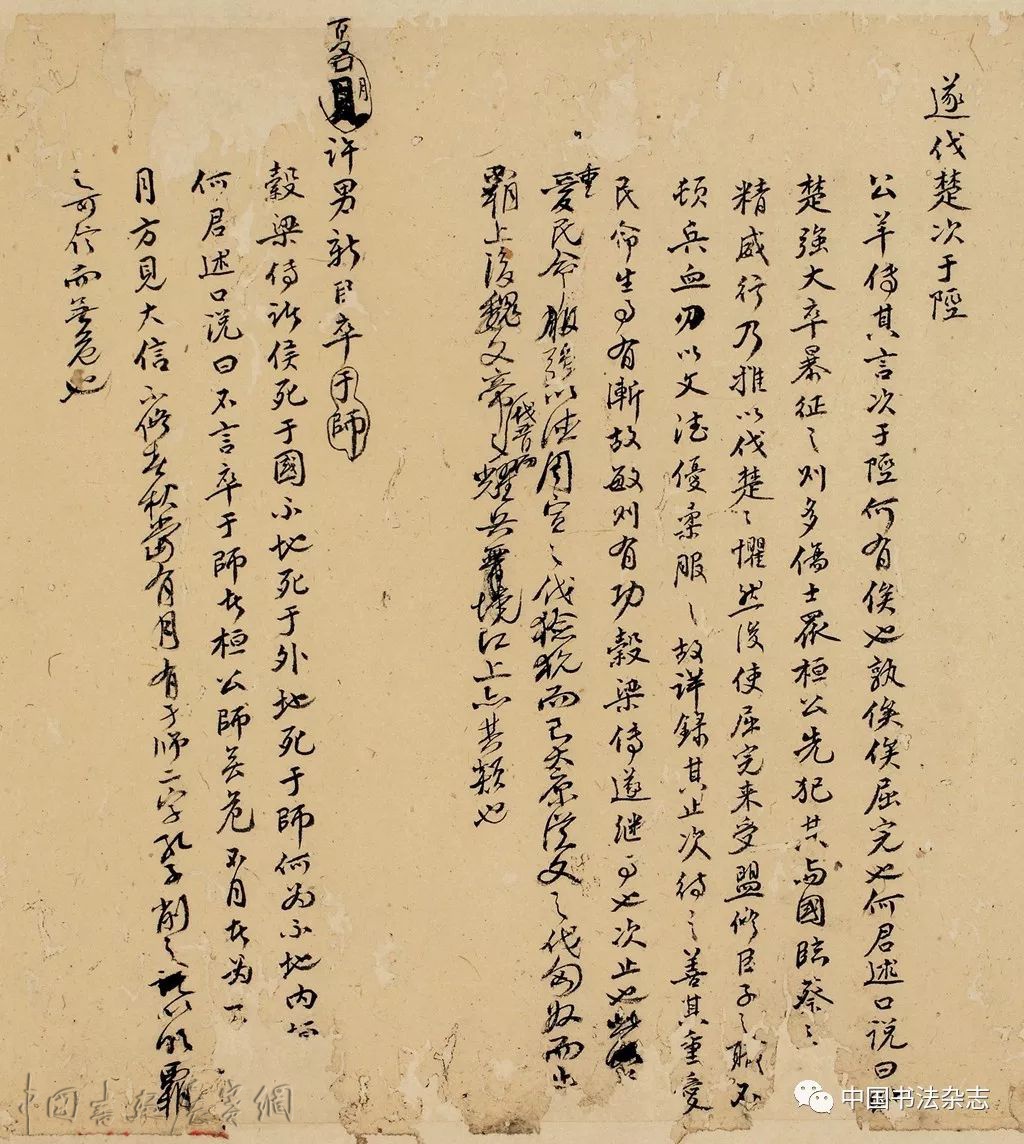 遂伐楚次于陘
公羊傳其言次于陘何有俟也孰俟俟屈完也何君述口說曰時
楚强大卒暴征之則多傷士眾桓公先犯其與國臨蔡蔡
精威行乃推以伐楚楚懼然後使屈完來受盟修臣子之職不
頓兵血刃以文德優柔服之故詳錄其止次待之善其重愛
民命生事有漸故敏則有功穀梁傳遂繼事也次止也
重愛民命服強以德周宣之伐獫狁而已太原漢文之伐匈奴而止
霸上後魏文帝 耀兵 境江上亦其類也
夏 月 許男新臣卒于師
穀梁傳諸侯死于國不地死于外地死于師何為不地內
何君述口說曰不言卒于師者桓公師無危不月者為
月方見大信 修春秋當有月有于師二字孔子削之 以明霸
之可信而無危也
中國書 網
中国书法杂志